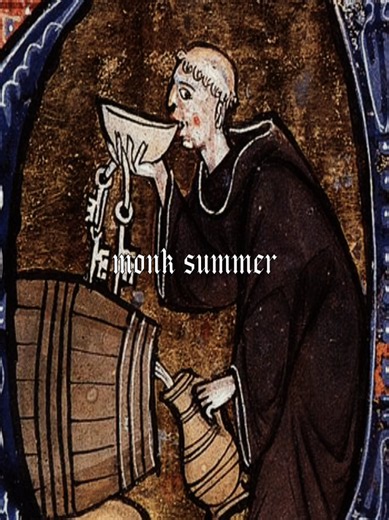 monk summer